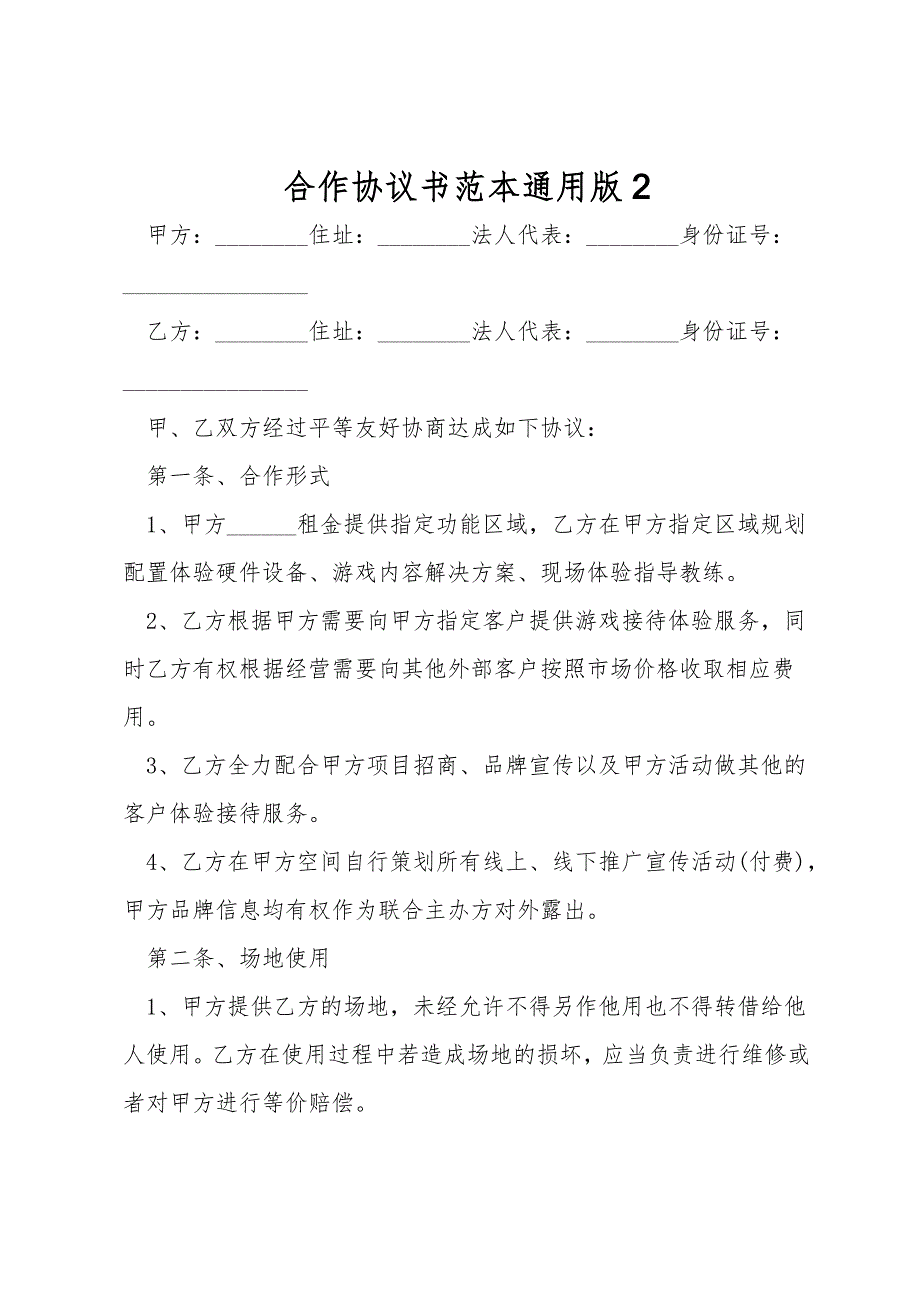 合作协议书范本通用版2
甲方：________住址：________法人代表：________身份证号：
________________
乙方：________住址：________法人代表：________身份证号：
________________
甲、乙双方经过平等友好协商达成如下协议：
第一条、合作形式
1、甲方______租金提供指定功能区域，乙方在甲方指定区域规划
配置体验硬件设备、游戏内容解决方案、现场体验指导教练。
2、乙方根据甲方需要向甲方指定客户提供游戏接待体验服务，同
时乙方有权根据经营需要向其他外部客户按照市场价格收取相应费
用。
3、乙方全力配合甲方项目招商、品牌宣传以及甲方活动做其他的
客户体验接待服务。
4、乙方在甲方空间自行策划所有线上、线下推广宣传活动(付费)，
甲方品牌信息均有权作为联合主办方对外露出。
第二条、场地使用
1、甲方提供乙方的场地，未经允许不得另作他用也不得转借给他
人使用。乙方在使用过程中若造成场地的损坏，应当负责进行维修或
者对甲方进行等价赔偿。